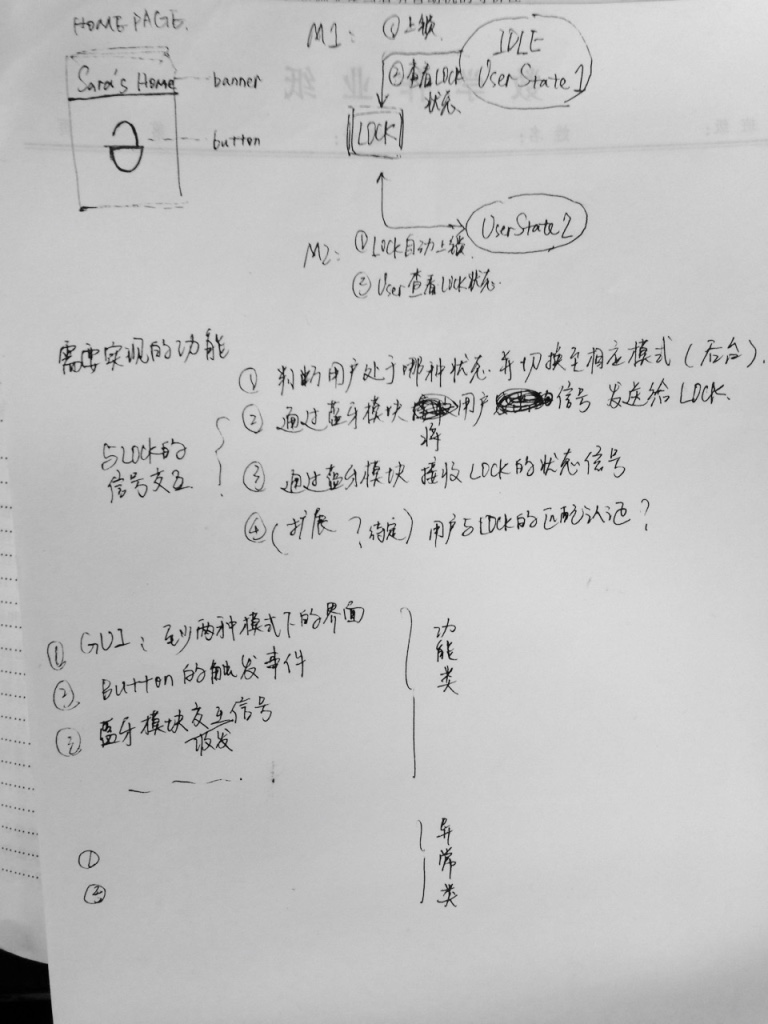 HOME PAGE.
Sara's Home
banner
button
M1: ① 上锁
② 查看LOCK
状态.
IDLE
User State 1
LOCK
User State 2
M2: ① LOCK自动上锁
② User 查看LOCK状态.
需要实现的功能
① 判断用户处于哪种状态.并切换至相应模式(后台).
② 通过蓝牙模块 将 用户 信号 发送给 LOCK.
与LOCK的
信号交互
③ 通过蓝牙模块 接收LOCK的状态信号
④ (扩展 ?待定) 用户与LOCK的匹配认证?
① GUI: 至少两种模式下的界面
② Button的触发事件
③ 蓝牙模块交互信号
收发
功能类
①
②
异常类